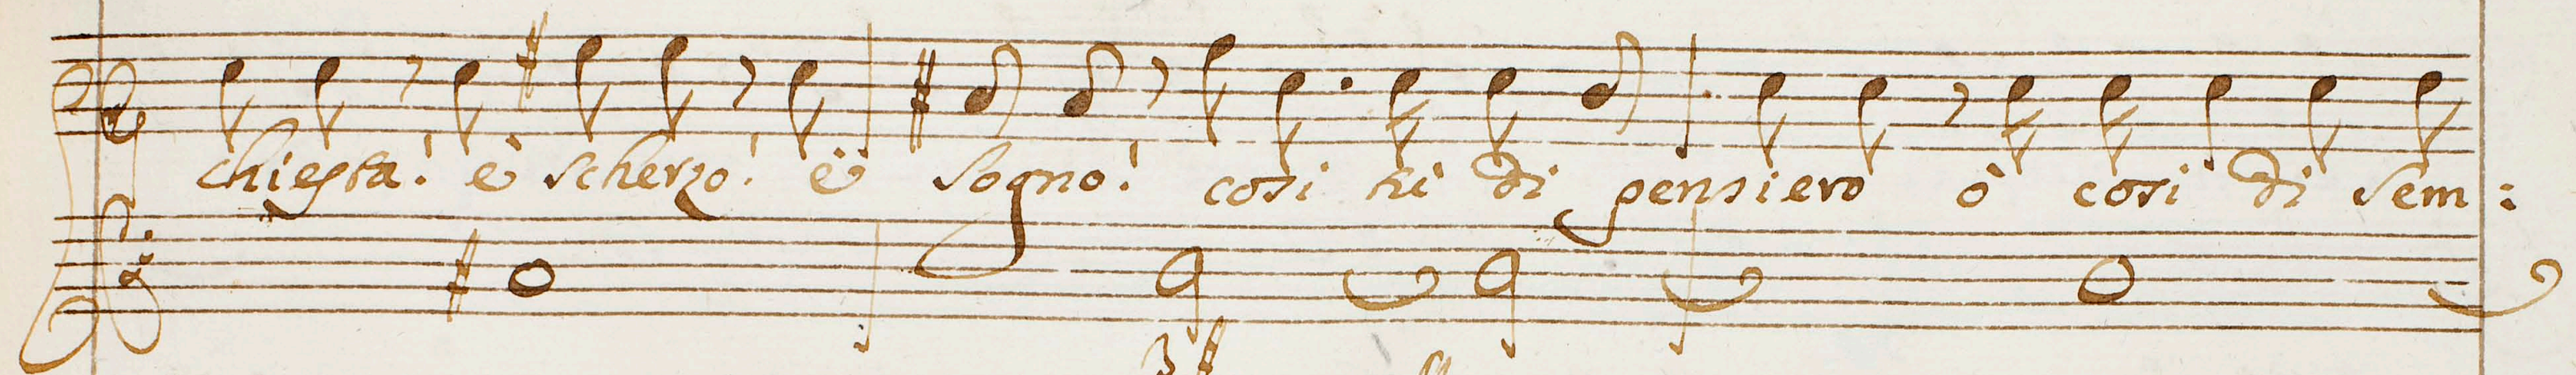 chiesta! è scherzo! è sogno! così hì di pensiero ò così di sem:
3 #